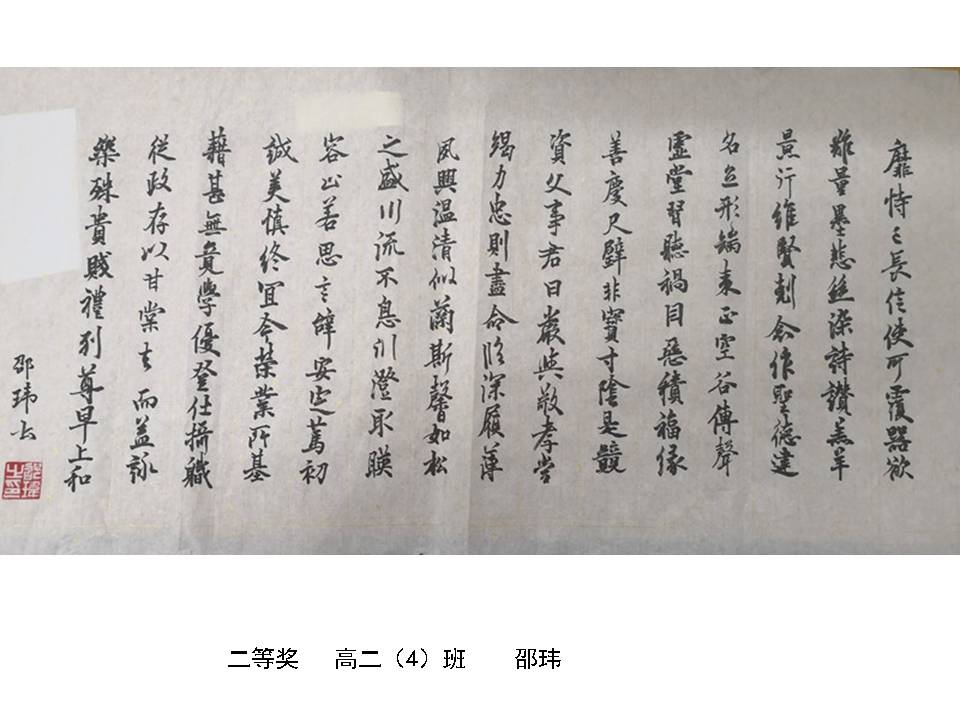 靡恃己長信使可覆器欲
難量墨悲絲染詩讚羔羊
景行維賢剋念作聖德建
名立形端表正空谷傳聲
虛堂習聽禍因惡積福緣
善慶尺璧非寶寸陰是競
資父事君曰嚴與敬孝當
竭力忠則盡命臨深履薄
夙興温清似蘭斯馨如松
之盛川流不息淵澄取暎
容止若思言辭安定篤初
誠美慎終宜令榮業所基
藉甚無竟學優登仕攝職
從政存以甘棠去而益詠
樂殊貴賤禮別尊卑上和
邵玮书
二等奖 高二（4）班 邵玮